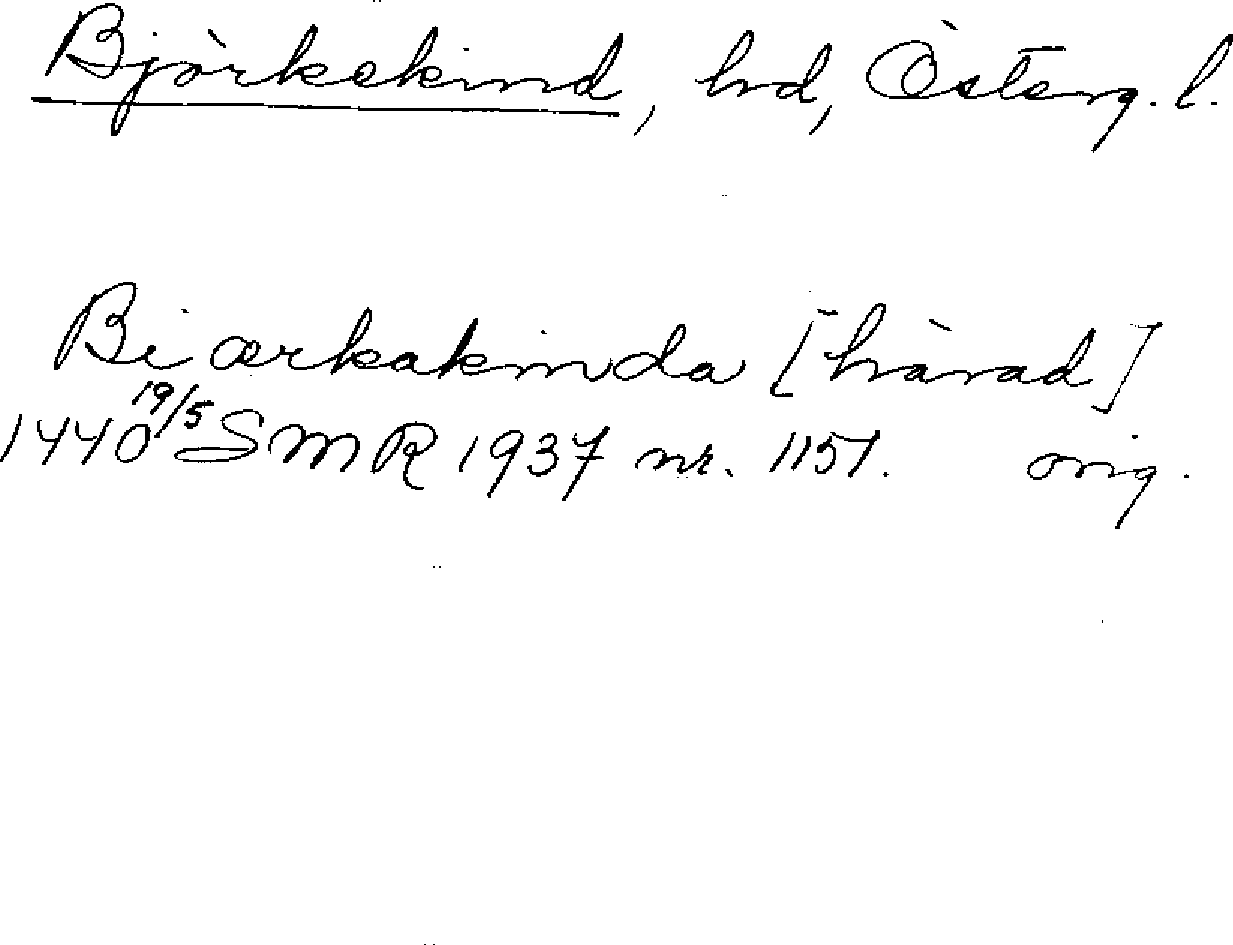 Björkekind, hd, Österg. l.
Biærkakinda [härad]
1440 19/5 SMR 1937 nr. 1151. orig.